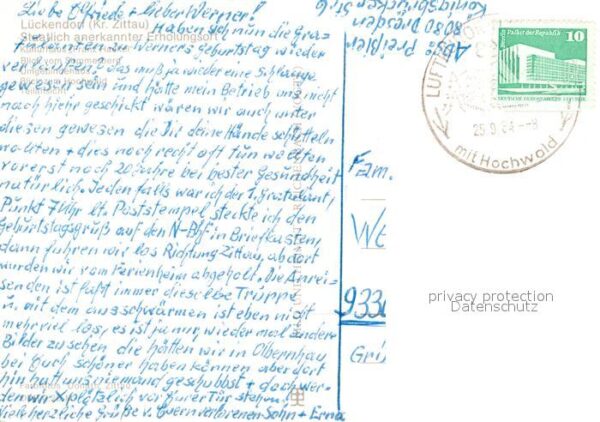 Liebe Elfriede + lieber Werner!
Lückendorf (Kr. Zittau)
Staatlich anerkannter Erholungsort
Haben schnin die Gra-
tulanten zu Werners Geburtstag wieder
verkehrt? Das muß ja wieder eine Schlange
gewesen sein und hätte mein Betrieb uns nicht
nach hier geschickt wären wir auch unter
diesen gewesen die Dir deine Hände schütteln
wollten + dies noch recht oft tun wollten
vorerst noch 20 Jahre bei bester Gesundheit
natürlich. Jedenfalls war ich der 1. Gratulant,
Punkt 7 Uhr lt. Poststempel steckte ich den
Geburtstagsgruß auf den N-Bhf in Briefkasten,
dann fuhren wir los Richtung Zittau, ab dort
wurden wir vom Ferienheim abgeholt. Die Anrei-
senden ist fast immer dieselbe Truppe
u. mit dem ausschwärmen ist eben nicht
mehr viel los, es ist ja nur wieder mal andere
Bilder zu sehen die hätten wir in Olbernhau
bei Euch schöner haben können aber dort
hin hat uns niemand geschubbst + doch wer-
den wir plötzlich vor Eurer Tür stehen.
Viele herzliche Grüße v. Euern verlorenen Sohn + Erna
Abs. Preißler
8080 Dresden
Königsbrücker Str.
Palast der Republik
10
DEUTSCHE DEMOKRATISCHE REPUBLIK
25.9.84--8
mit Hochwald
Fam.
We
933
Grü
privacy protection
Datenschutz